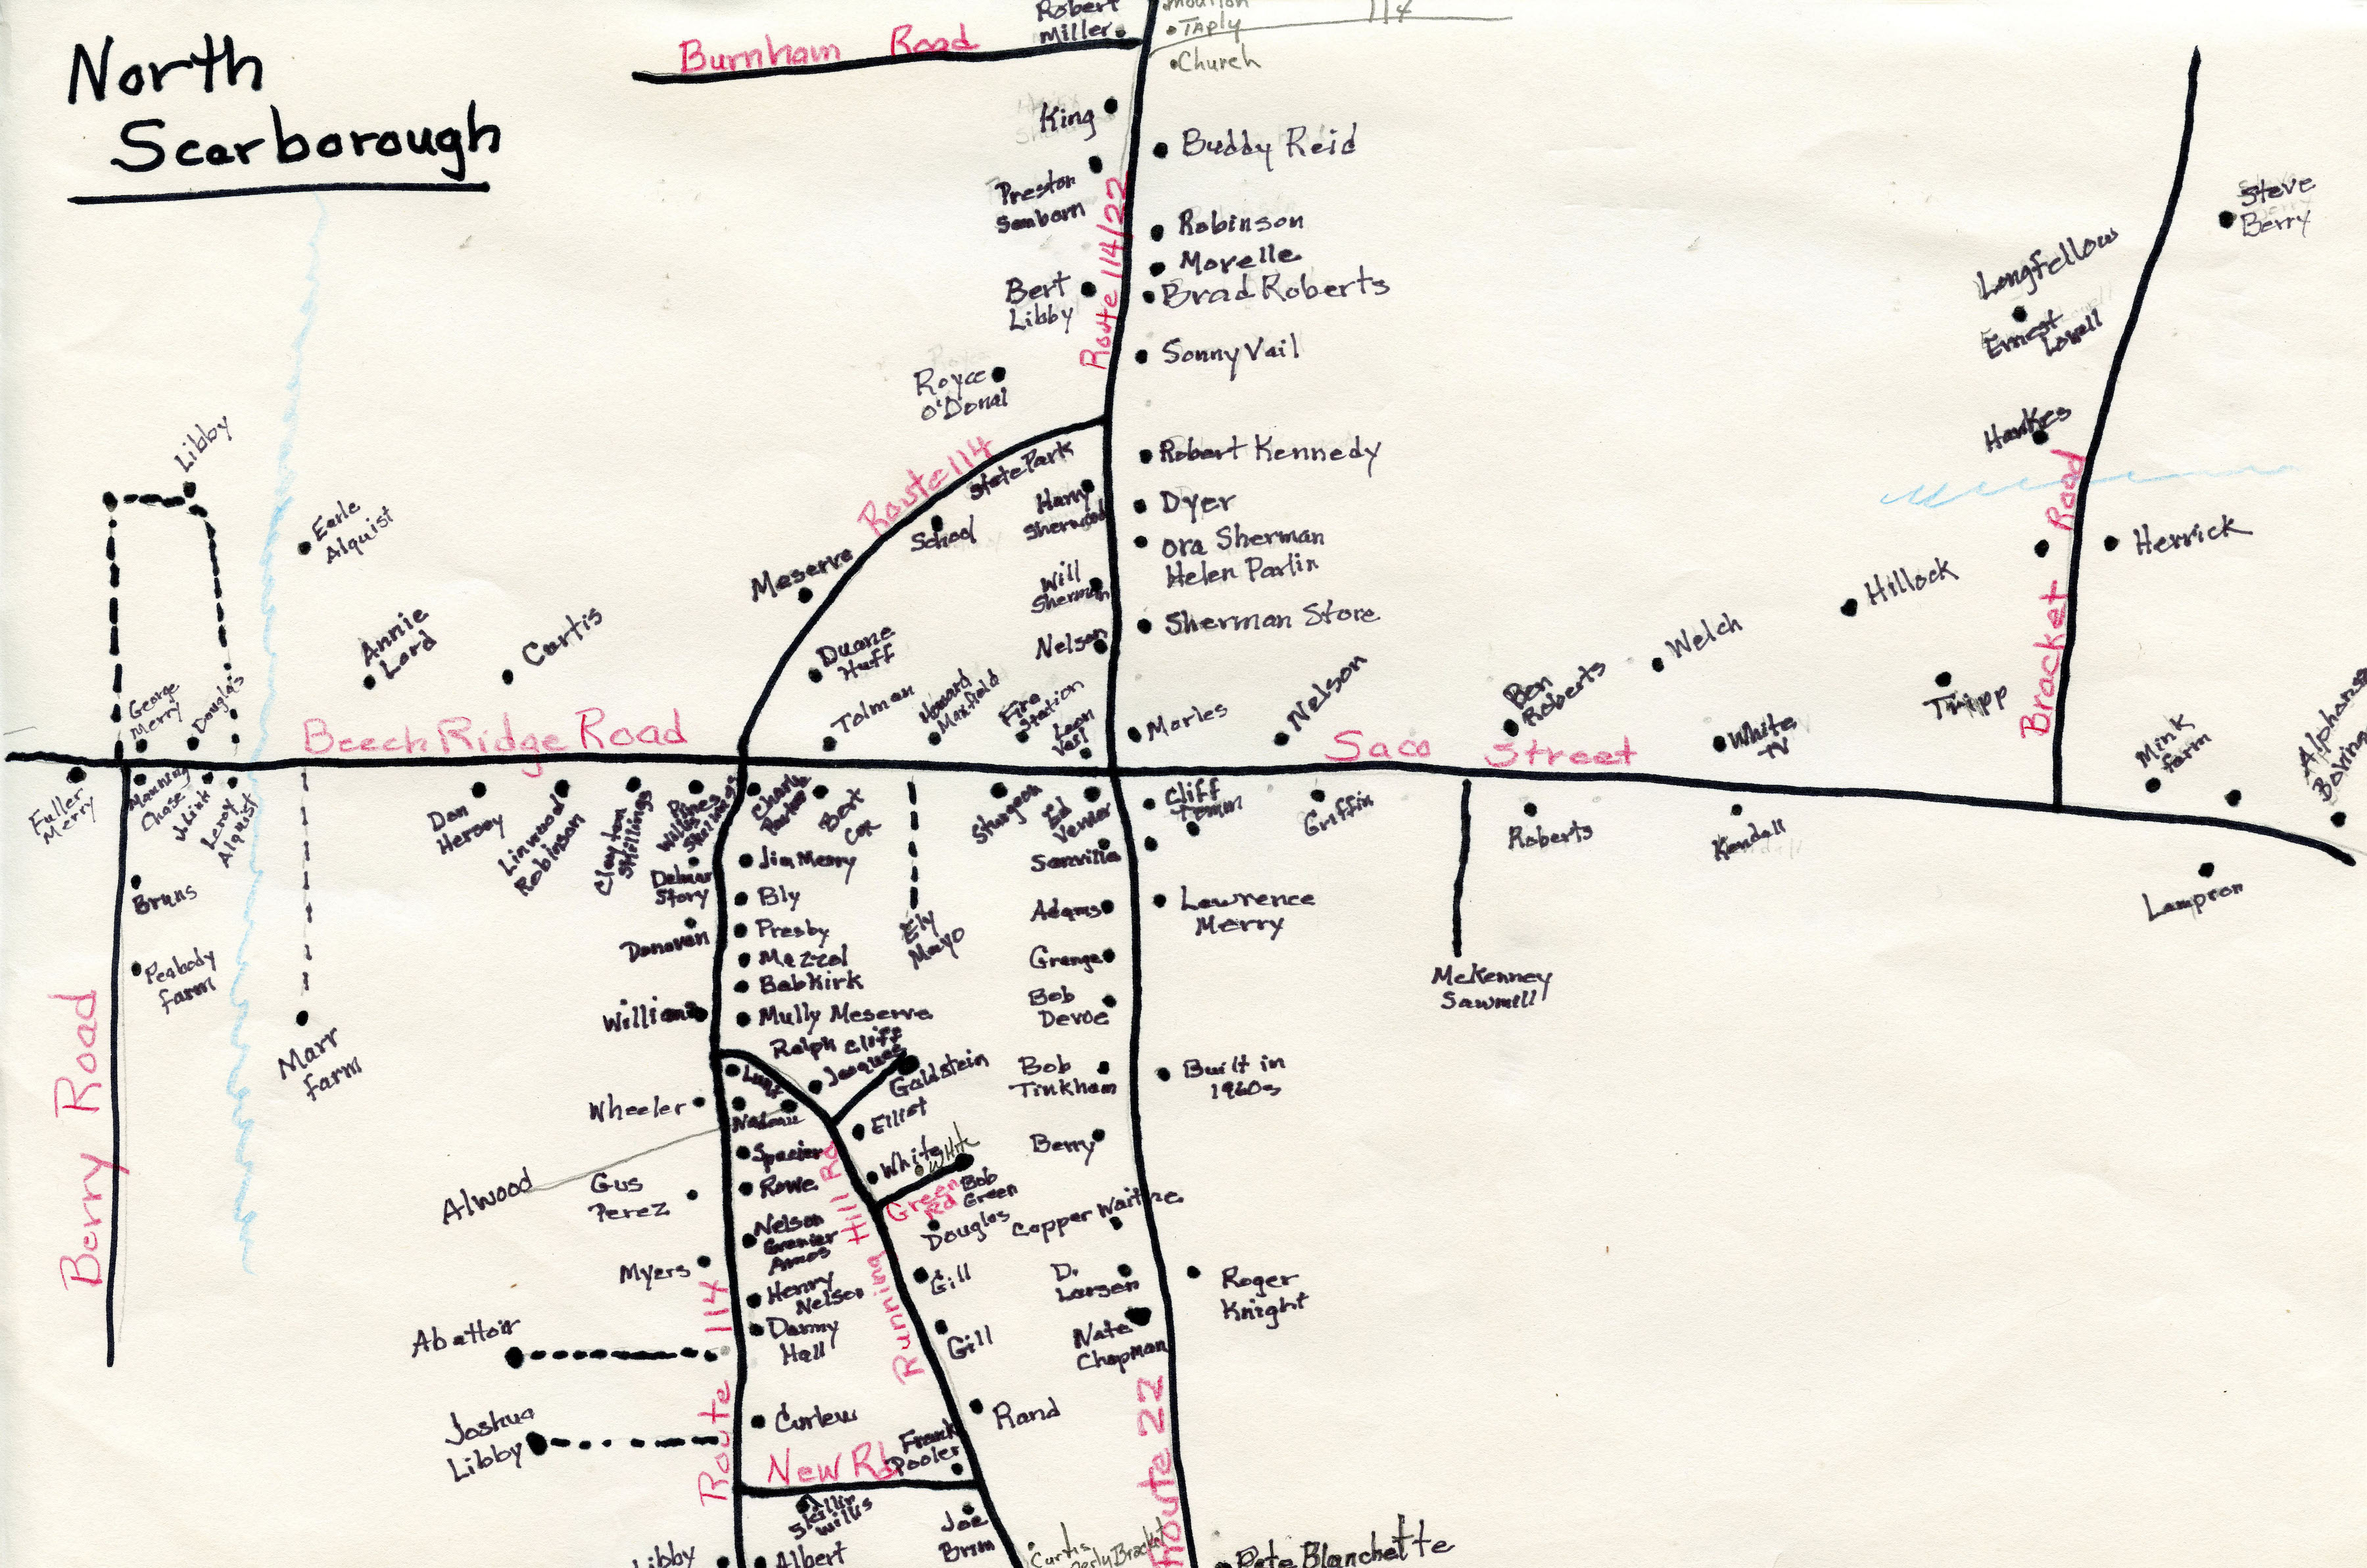 North
Scarborough
Burnham Road
Robert
Miller
114
TAPly
Church
King
Buddy Reid
Preston
Sanborn
Route 114/22
Robinson
Morelle
Brad Roberts
Bert
Libby
Sonny Vail
Royce
O'Donal
Route 114
State Park
Robert Kennedy
Harry
Sherwood
Dyer
School
Ora Sherman
Helen Parlin
Meserve
Will
Sherman
Sherman Store
Nelson
Duane
Huff
Tolman
Howard
Maxfield
Fire
Station
Leon
Vail
Marles
Nelson
Ben
Roberts
Welch
White
TV
Hillock
Tripp
Steve
Berry
Longfellow
Ernest
Lowell
Hankes
Bracket Road
Herrick
Mink
farm
Libby
Earle
Alquist
Annie
Lord
Curtis
George
Merry
Douglas
Beech Ridge Road
Saco Street
Fuller
Merry
Manning
Chase
Leroy
Alquist
Don
Hersey
Linwood
Robinson
Clayton
Skillings
Pines
Willis
Skillings
Charle
Parker
Bert
Cox
Sturgeon
Ed
Verrier
Cliff
Temm
Griffin
Roberts
Kendall
Lampron
Bruns
Peabody
farm
Berry Road
Marr
farm
Delmar
Story
Jim Merry
Bly
Donovan
Presby
Mezzol
Babkirk
Mully Meserve
Ely
Mayo
Sanville
Adams
Lawrence
Merry
Grange
Bob
Devoe
McKenney
Sawmill
Ralph Cliff
Jacques
Goldstein
Lunt
Bob
Tinkham
Built in
1960s
Wheeler
Nadeau
Elliot
Spacier
White
White
Berry
Alwood
Gus
Perez
Rowe
Green
Rd
Bob
Green
Douglas
Copper Waitne
Nelson
Grenier
Amos
Myers
Gill
D.
Larsen
Roger
Knight
Henry
Nelson
Running Hill Rd
Route 114
Danny
Hall
Gill
Nate
Chapman
Abattoir
Joshua
Libby
Curlew
Rand
Frank
Pooler
New Rd
Route 22
Skillin
Willis
Joe
Brim
Libby
Albert
Curtis
Pete Blanchette